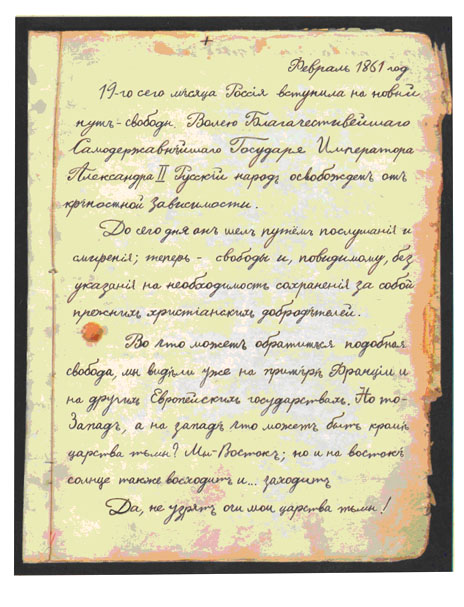 Февраль 1861 год
19-го сего мѣсяца Россія вступила на новый
путь - свободы. Волею Благачестивейшаго
Самодержавнѣйшаго Государя Императора
Александра II Русскій народъ освобожденъ отъ
крѣпостной зависимости.
До сего дня онъ шелъ путёмъ послушанія и
смиренія; теперь - свободы и, повидимому, без
указанія на необходимость сохраненія за собой
прежнихъ христіанскихъ добродѣтелей.
Во что можетъ обратиться подобная
свобода, мы видѣли уже на примѣрѣ Франціи и
на другихъ Европейскихъ государствахъ. Но то-
Западъ, а на западѣ что можетъ быть кромѣ
царства тьмы? Мы-Востокъ; но и на востокѣ
солнце также восходитъ и... заходитъ
Да, не узрятъ очи мои царства тьмы!